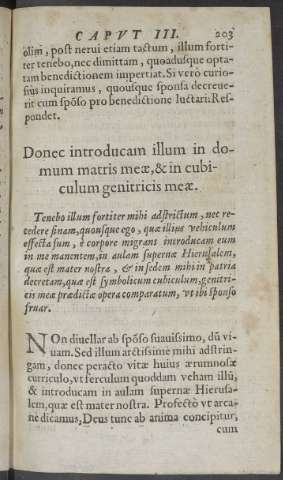 CAPVT III. 203
olim, post nerui etiam tactum, illum forti-
ter tenebo, nec dimittam, quoadusque opta-
tam benedictionem impertiat. Si verò curio-
sius inquiramus, quousque sponsa decreue-
rit cum spōso pro benedictione luctari: Res-
pondet.
Donec introducam illum in do-
mum matris meæ, & in cubi-
culum genitricis meæ.
Tenebo illum fortiter mihi adstrictum, nec re-
cedere sinam, quousque ego, quæ illius vehiculum
effecta sum, è corpore migrans introducam eum
in me manentem, in aulam supernæ Hierusalem,
quæ est mater nostra, & in sedem mihi in patria
decretam, quæ est symbolicum cubiculum, genitri-
cis meæ prædictæ opera comparatum, vt ibi sponso
fruar.
NOn diuellar ab spōso suauissimo, dū vi-
uam. Sed illum arctissimè mihi adstrin-
gam, donec peracto vitæ huius ærumnosæ
curriculo, vt ferculum quoddam veham illū,
& introducam in aulam supernæ Hierusa-
lem, quæ est mater nostra. Profectò vt arca-
nè dicamus, Deus tunc ab anima concipitur,
cum